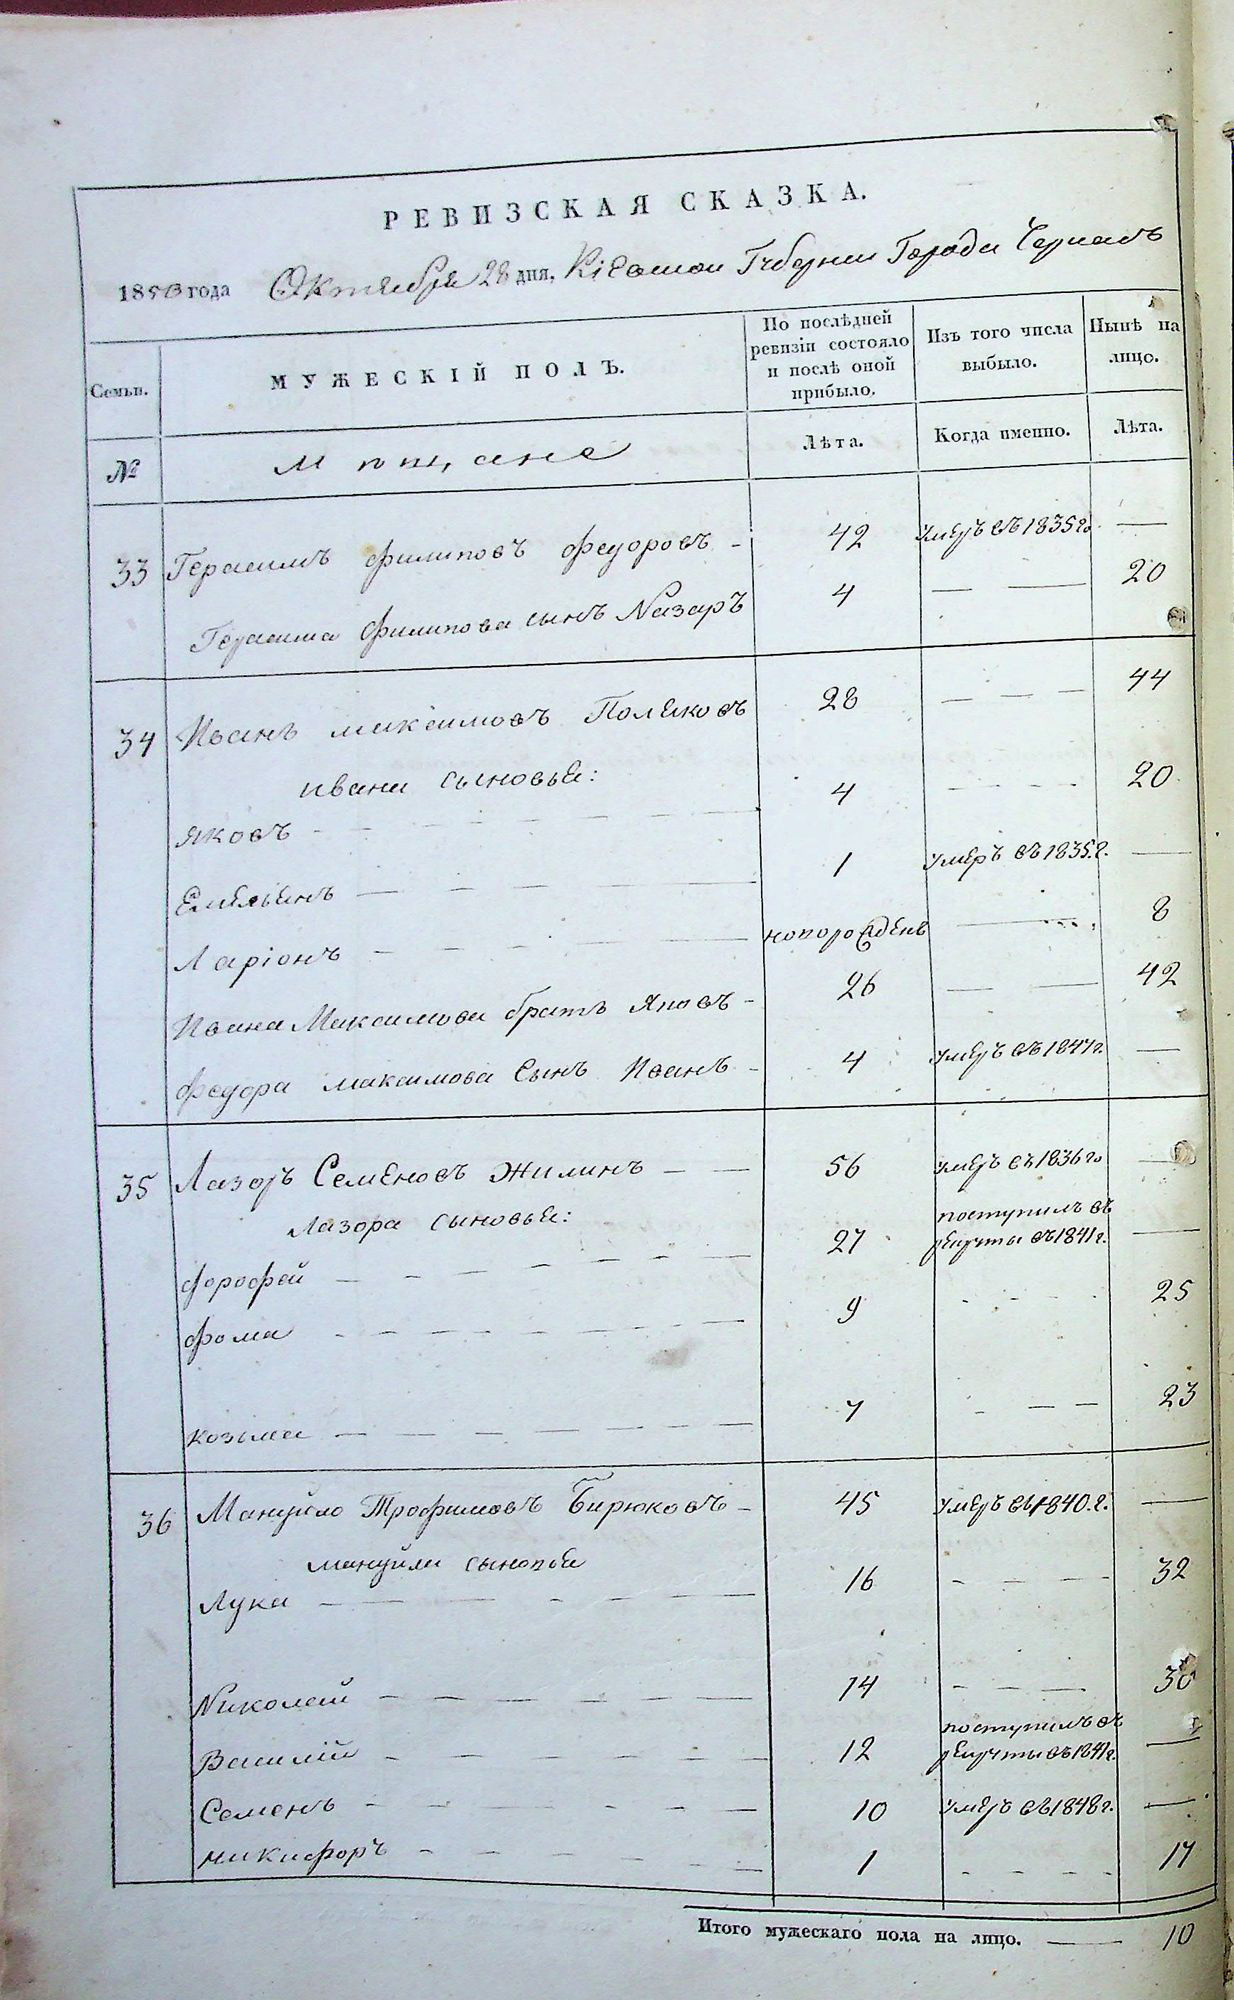 РЕВИЗСКАЯ СКАЗКА.
1850 года Октября 28 дня, Кіевской Губерніи Города Черкасъ
Семьи.
МУЖЕСКІЙ ПОЛЪ.
По послѣдней ревизіи состояло и послѣ оной прибыло.
Изъ того числа выбыло.
Нынѣ на лицо.
№
Мѣщане
Лѣта.
Когда именно.
Лѣта.
33 Герасимъ Филиповъ Федоровъ - 42 умеръ въ 1835 го —
Герасима Филипова сынъ Назаръ 4 — — 20
34 Иванъ Максимовъ Поляковъ 28 — — — 44
Ивана сыновья:
Яковъ 4 — — — 20
Емельенъ 1 умеръ въ 1835.г. —
Ларіонъ новорожденъ — 8
Ивана Максимова братъ Яковъ - 26 — — 42
Федора Максимова сынъ Иванъ - 4 умеръ въ 1847 г. —
35 Лазоръ Семеновъ Жилинъ — — 56 умеръ въ 1836 го —
Лазора сыновья:
Дорофей 27 поступилъ въ рекруты въ 1841 г. —
Фома 9 — — — 25
Козьма 7 — — — 23
36 Мануйло Трофимовъ Бирюковъ - 45 умеръ въ 1840.г. —
Мануйла сыновья
Лука 16 — — — 32
Николай 14 — — — 30
Василій 12 поступилъ въ рекруты въ 1841 г. —
Семенъ 10 умеръ въ 1848 г. —
Никифоръ 1 — — — 17
Итого мужескаго пола на лицо. — 10